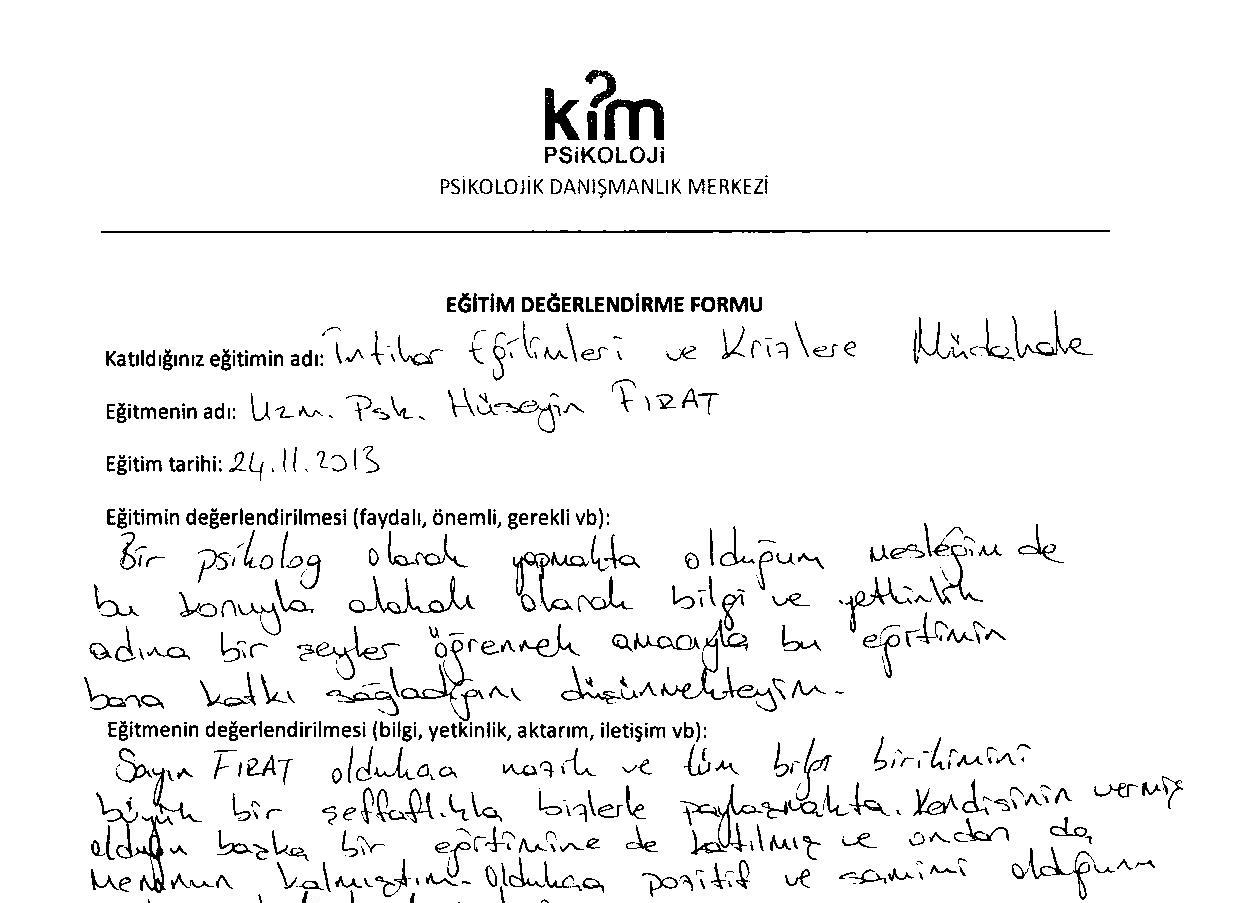 kim
PSiKOLOJi
PSİKOLOJİK DANIŞMANLIK MERKEZİ
EĞİTİM DEĞERLENDİRME FORMU
Katıldığınız eğitimin adı: İntihar Eğitimleri ve Krizlere Müdahale
Eğitmenin adı: Uzm. Psk. Hüseyin FIRAT
Eğitim tarihi: 24.11.2013
Eğitimin değerlendirilmesi (faydalı, önemli, gerekli vb):
Bir psikolog olarak yapmakta olduğum mesleğim de
bu konuyla alakalı olarak bilgi ve yetkinlik
adına bir şeyler öğrenmek amacıyla bu eğitimin
bana katkı sağladığını düşünmekteyim.
Eğitmenin değerlendirilmesi (bilgi, yetkinlik, aktarım, iletişim vb):
Sayın FIRAT oldukça nazik ve tüm bilgi birikimini
büyük bir şeffaflıkla bizlerle paylaşmakta. Kendisinin vermiş
olduğu başka bir eğitimine de katılmış ve ondan da
memnun kalmıştım. Oldukça pozitif ve samimi olduğunu